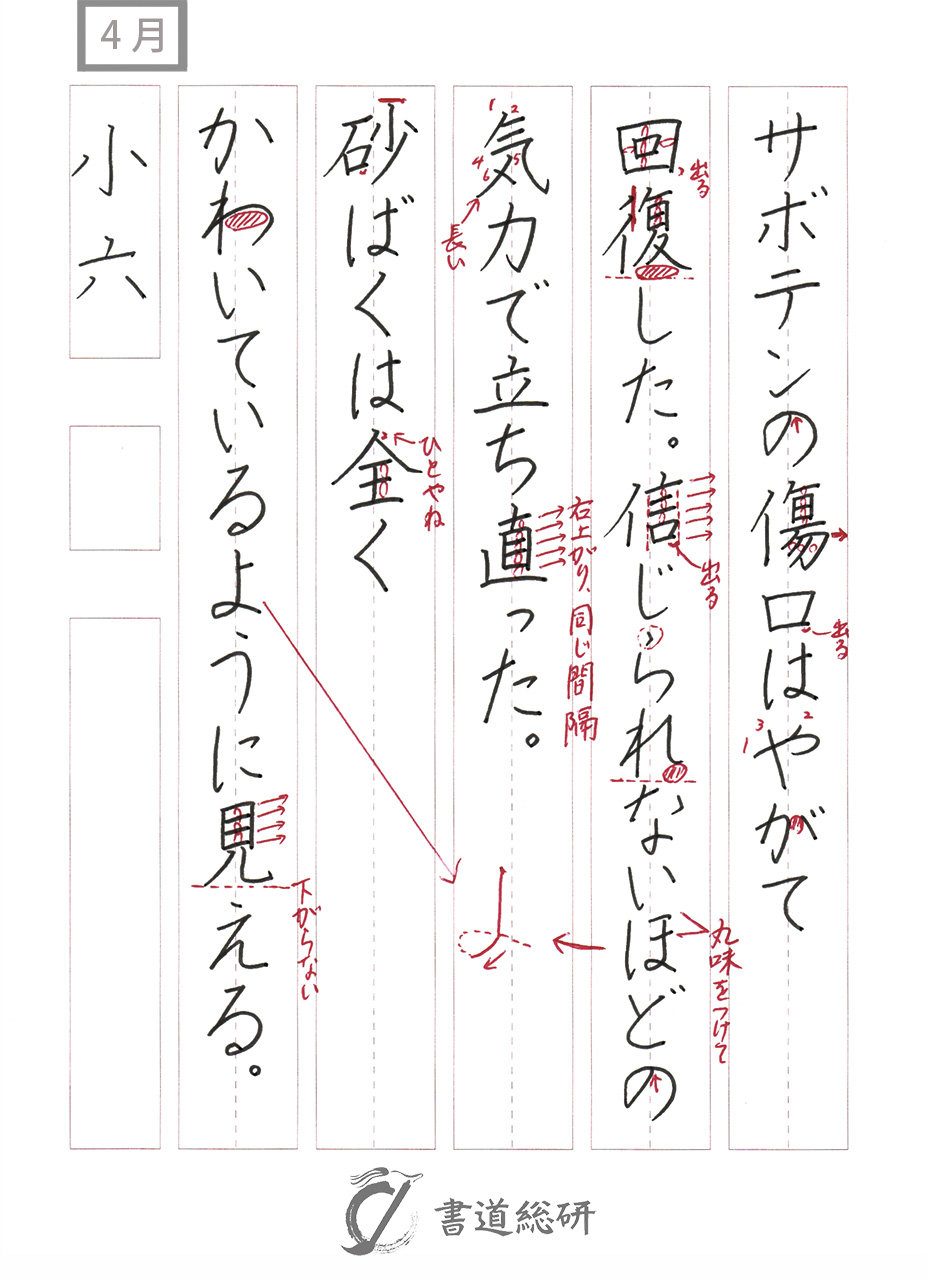 4月
サボテンの傷口はやがて
出る
1
2
3
回復した。信じられないほどの
出る
出る
丸味をつけて
気力で立ち直った。
1
2
4
5
6
長い
右上がり、同じ間隔
砂ばくは全く
ひとやね
かわいているように見える。
下がらない
小六
書道総研